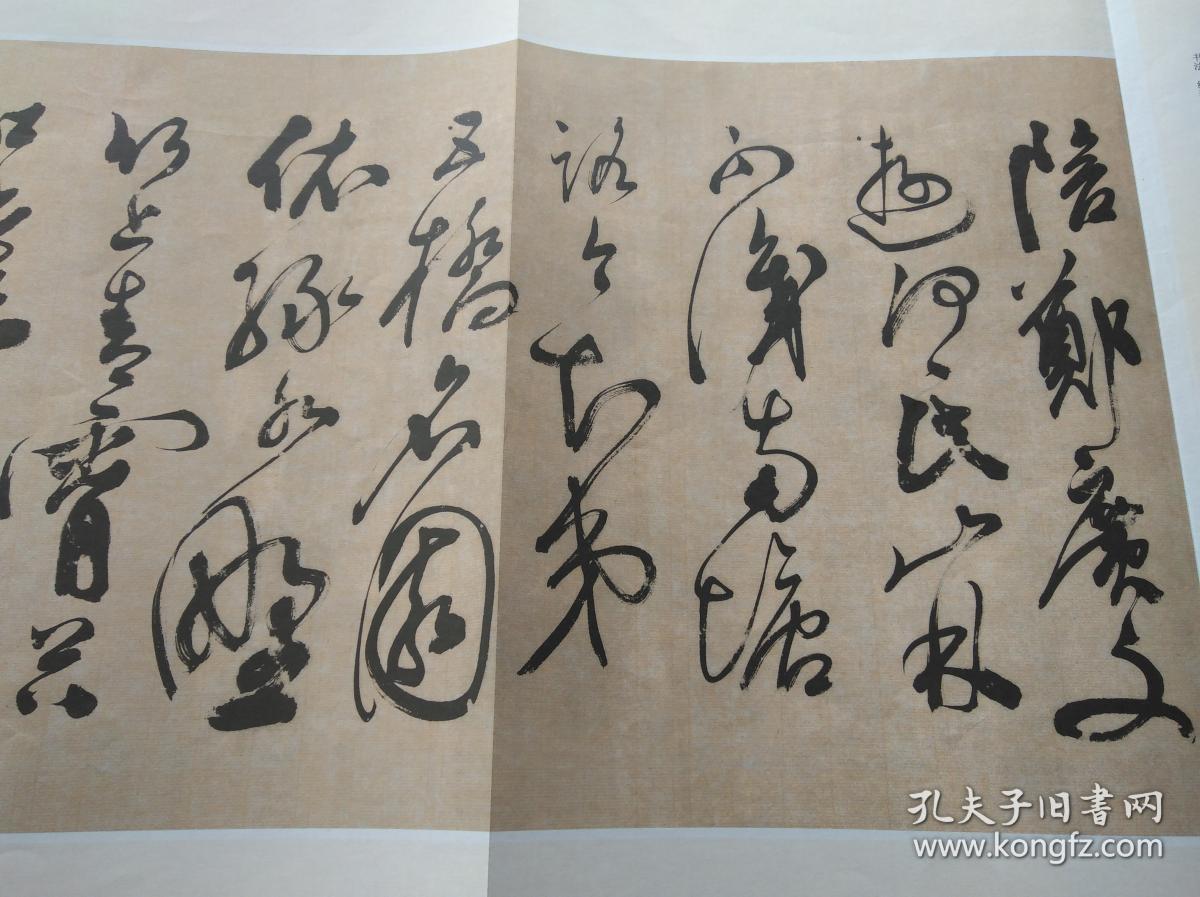 陪鄭廣文
遊何氏山林
不識南塘
路今知第
五橋名園
依綠水野
竹上青霄谷
口
书法
孔夫子旧书网
www.kongfz.com